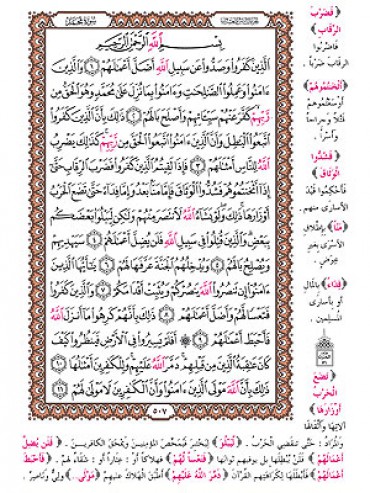 سُورَةُ مُحَمَّد
بِسْمِ اللَّهِ الرَّحْمَٰنِ الرَّحِيمِ
الَّذِينَ كَفَرُوا وَصَدُّوا عَن سَبِيلِ اللَّهِ أَضَلَّ أَعْمَٰلَهُمْ ١ وَالَّذِينَ
ءَامَنُوا وَعَمِلُوا الصَّٰلِحَٰتِ وَءَامَنُوا بِمَا نُزِّلَ عَلَىٰ مُحَمَّدٍ وَهُوَ الْحَقُّ مِن
رَّبِّهِمْ كَفَّرَ عَنْهُمْ سَيِّـَٔاتِهِمْ وَأَصْلَحَ بَالَهُمْ ٢ ذَٰلِكَ بِأَنَّ الَّذِينَ كَفَرُوا
اتَّبَعُوا الْبَٰطِلَ وَأَنَّ الَّذِينَ ءَامَنُوا اتَّبَعُوا الْحَقَّ مِن رَّبِّهِمْ كَذَٰلِكَ يَضْرِبُ
اللَّهُ لِلنَّاسِ أَمْثَٰلَهُمْ ٣ فَإِذَا لَقِيتُمُ الَّذِينَ كَفَرُوا فَضَرْبَ الرِّقَابِ حَتَّىٰ
إِذَا أَثْخَنتُمُوهُمْ فَشُدُّوا الْوَثَاقَ فَإِمَّا مَنًّا بَعْدُ وَإِمَّا فِدَاءً حَتَّىٰ تَضَعَ الْحَرْبُ
أَوْزَارَهَا ذَٰلِكَ وَلَوْ يَشَاءُ اللَّهُ لَانتَصَرَ مِنْهُمْ وَلَٰكِن لِّيَبْلُوَا بَعْضَكُم
بِبَعْضٍ وَالَّذِينَ قُتِلُوا فِي سَبِيلِ اللَّهِ فَلَن يُضِلَّ أَعْمَٰلَهُمْ ٤ سَيَهْدِيهِمْ
وَيُصْلِحُ بَالَهُمْ ٥ وَيُدْخِلُهُمُ الْجَنَّةَ عَرَّفَهَا لَهُمْ ٦ يَٰأَيُّهَا الَّذِينَ
ءَامَنُوا إِن تَنصُرُوا اللَّهَ يَنصُرْكُمْ وَيُثَبِّتْ أَقْدَامَكُمْ ٧ وَالَّذِينَ كَفَرُوا
فَتَعْسًا لَّهُمْ وَأَضَلَّ أَعْمَٰلَهُمْ ٨ ذَٰلِكَ بِأَنَّهُمْ كَرِهُوا مَا أَنزَلَ اللَّهُ
فَأَحْبَطَ أَعْمَٰلَهُمْ ٩ أَفَلَمْ يَسِيرُوا فِي الْأَرْضِ فَيَنظُرُوا كَيْفَ
كَانَ عَٰقِبَةُ الَّذِينَ مِن قَبْلِهِمْ دَمَّرَ اللَّهُ عَلَيْهِمْ وَلِلْكَٰفِرِينَ أَمْثَٰلُهَا ١٠
ذَٰلِكَ بِأَنَّ اللَّهَ مَوْلَى الَّذِينَ ءَامَنُوا وَأَنَّ الْكَٰفِرِينَ لَا مَوْلَىٰ لَهُمْ ١١
٥٠٧
﴿فَضَرْبَ
الرِّقَابِ﴾
فَاضْرِبُوا
الرِّقَابَ ضَرْبًا .
﴿أَثْخَنتُمُوهُمْ﴾
أَوْسَعْتُمُوهُمْ
قَتْلًا وَجِرَاحًا
وَأَسْرًا .
﴿فَشُدُّوا
الْوَثَاقَ﴾
فَأَحْكِمُوا قَيْدَ
الأسارى منهم .
﴿مَنًّا﴾ بِإِطْلَاقِ
الأسْرَى بِغَيْرِ
عِوَضٍ .
﴿فِدَاءً﴾ بِالْمَالِ
أو بأسارى
المُسلمين .
﴿تَضَعَ
الْحَرْبُ
أَوْزَارَهَا﴾
آلاتِهَا وَأَثْقَالَهَا
وَالمُرَادُ : حَتَّى تنقضي الحَرْبُ . ﴿لِيَبْلُوَا﴾ لِيَخْتَبِرَ فَيُمَحِّصَ المُؤمِنِينَ وَيَمْحَقَ الكافرينَ . ﴿فَلَن يُضِلَّ
أَعْمَٰلَهُمْ﴾ فَلَنْ يُبْطِلَهَا بل يوفيهم ثوابها ﴿فَتَعْسًا لَّهُمْ﴾ فهلاكًا أو : عثارًا أو : شقاءً لهم . ﴿فَأَحْبَطَ
أَعْمَٰلَهُمْ﴾ فَأبطلها لكراهتهم القرآن ﴿دَمَّرَ اللَّهُ عَلَيْهِمْ﴾ أطبق الهلاك عليهم ﴿مَوْلَى﴾ ولي وناصر .